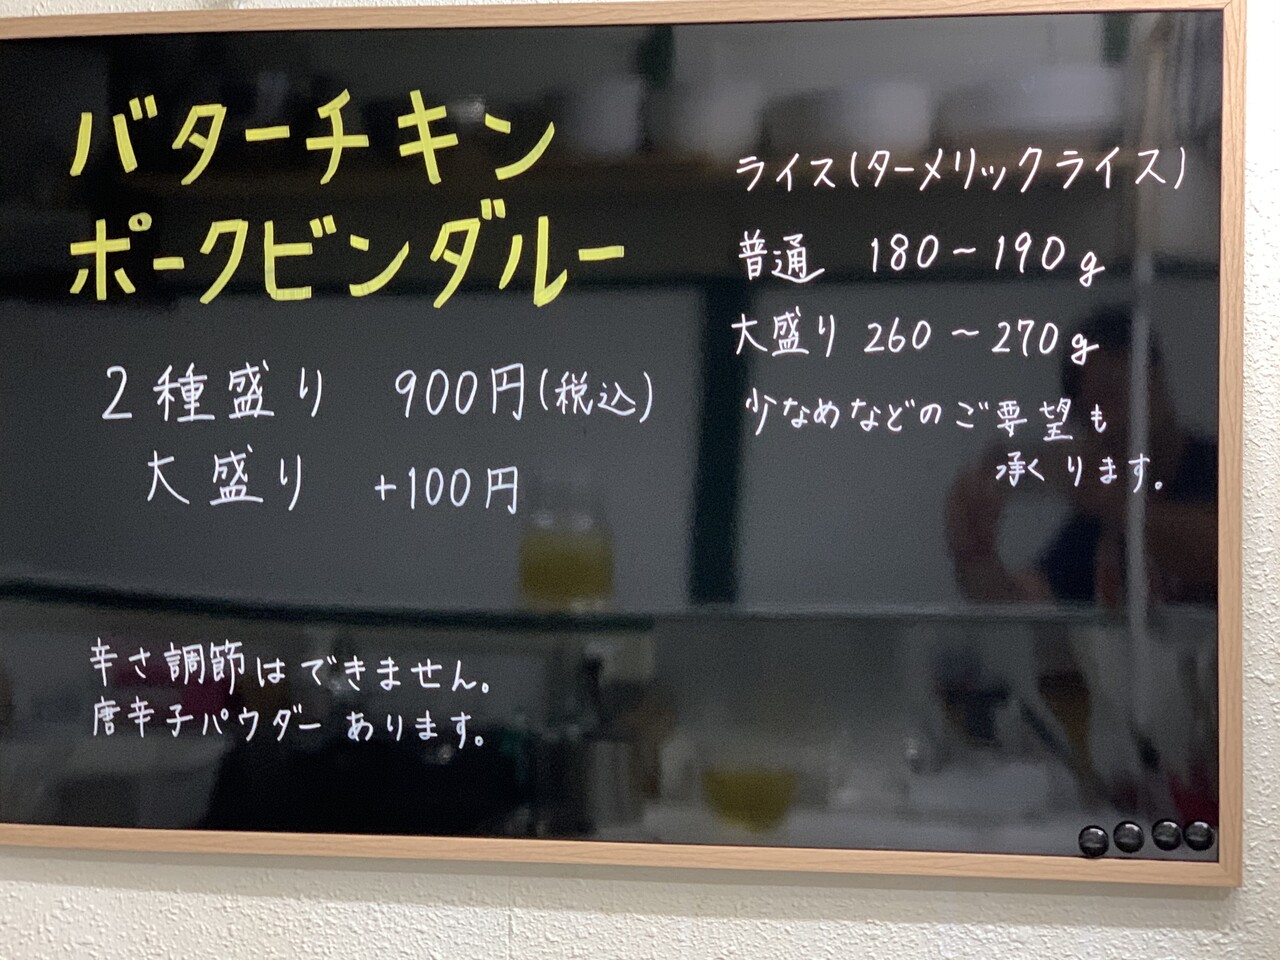 バターチキン
ポークビンダルー
2種盛り 900円(税込)
大盛り +100円
辛さ調節はできません。
唐辛子パウダーあります。
ライス(ターメリックライス)
普通 180~190g
大盛り 260~270g
少なめなどのご要望も
承くります。